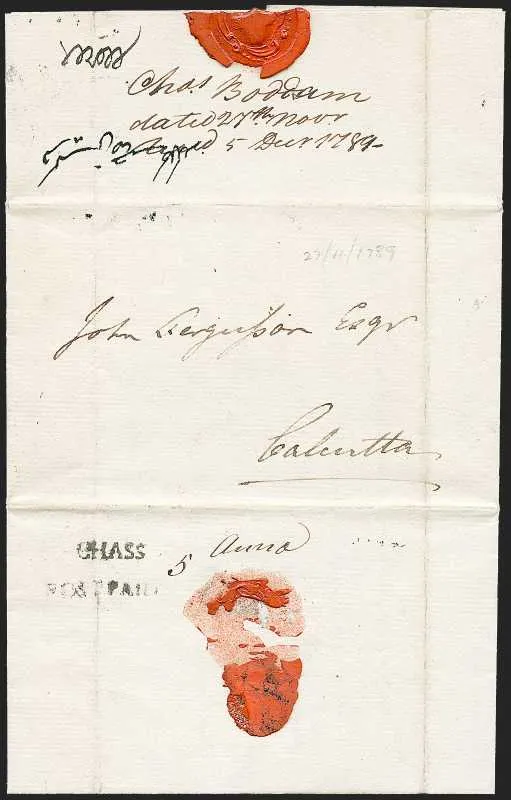 Chas. Boddam
dated 27th Novr
5 Decr 1789-
27/11/1789
John Fergusson Esqr
Calcutta
5 Anna
CHASS
POST PAID